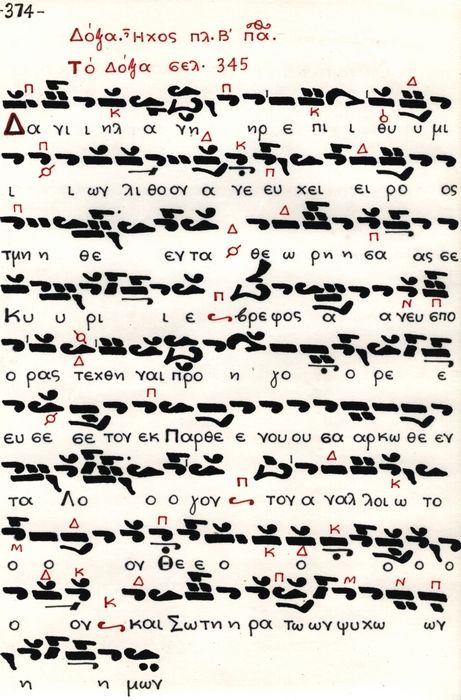 -374-
Δόξα. Ἦχος πλ. Β' πα.
Τό Δόξα σελ. 345
Δα γι ι ηλ α νη ηρ ε πι ι θυ υ μι
ι ι ων λι θο ον α γε ευ χει ει ρο ος
τμη η θε εν τα θε ω ρη η σα ας σε
Κυ υ ρι ι ε βρε φος α α νευ σπο
ο ρας τεχ θη ναι προ η γο ο ρε ε
ευ σε σε τον εκ Παρ θε ε νου ου σα αρ κω θε εν
τα Λο ο ο γον τον α ναλ λοι ω το
ο ο ον Θε ε ο ο ο ο ο
ο ον και Σω τη η ρα τω ων ψυ χω ων
η η μων